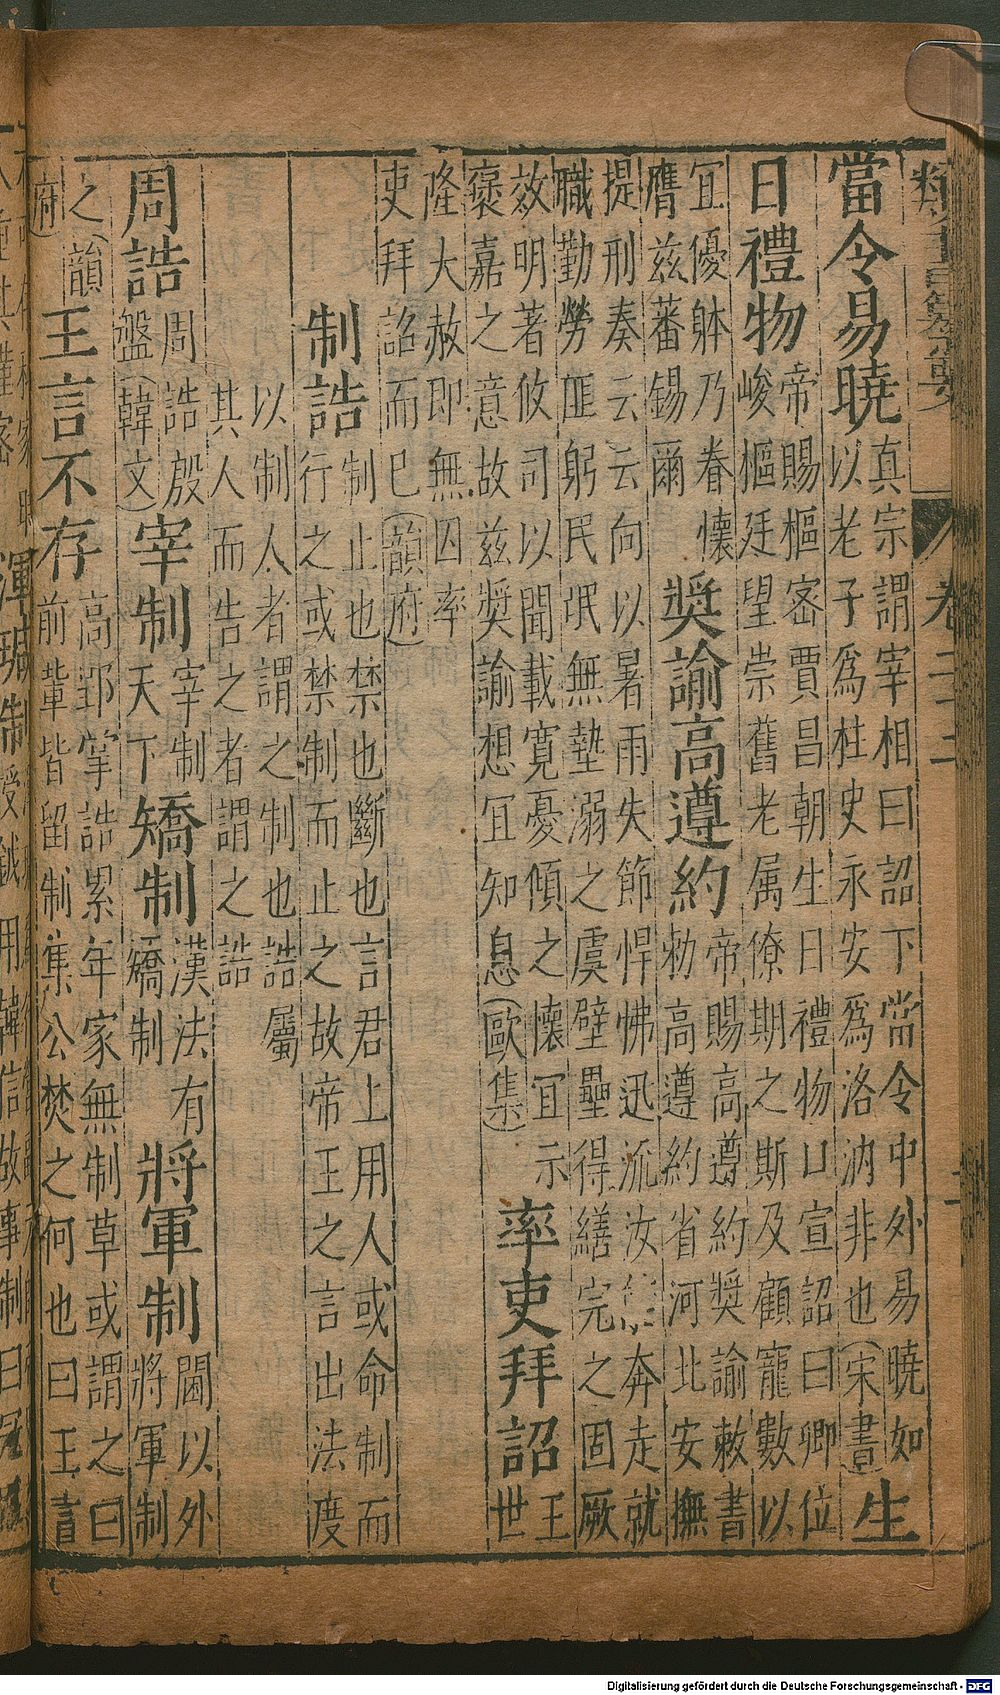 卷二十三
當令易曉 真宗謂宰相曰詔下當令中外易曉如
以老子爲柱史永安爲洛汭非也(宋書) 生
日禮物 帝賜樞密賈昌朝生日禮物口宣詔曰卿位
峻樞廷望崇舊老属僚期之斯及顧寵數以
宜優躰乃眷懷
膺兹蕃錫爾 奬諭高遵約 帝賜高遵約奬諭敕書
勑高遵約省河北安撫
提刑奏云云向以暑雨失節悍怫迅流汝奔走就
職勤勞匪躬民氓無墊溺之虞壁壘得繕完之固厥
效明著攸司以聞載寛憂傾之懷宜示
褒嘉之意故兹奬諭想宜知悉(歐集) 率吏拜詔 王
世
隆大赦即無囚率
吏拜詔而已(韻府)
制誥 制止也禁也斷也言君上用人或命制而
行之或禁制而止之故帝王之言出法度
以制人者謂之制也誥屬
其人而告之者謂之誥
周誥 周誥殷
盤(韓文) 宰制 宰制
天下 矯制 漢法有
矯制 將軍制 閫以外
將軍制
之(韻
府) 王言不存 高郢掌誥累年家無制草或謂之曰
前輩皆留制集公焚之何也曰王言
渾瑊制 授鉞用韓信故事制曰
Digitalisierung gefördert durch die Deutsche Forschungsgemeinschaft - DFG